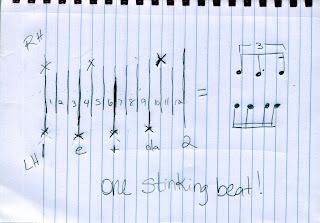 RH
3
1 2 3 4 5 6 7 8 9 10 11 12 =
LH 1 e + da 2
one stinking beat!